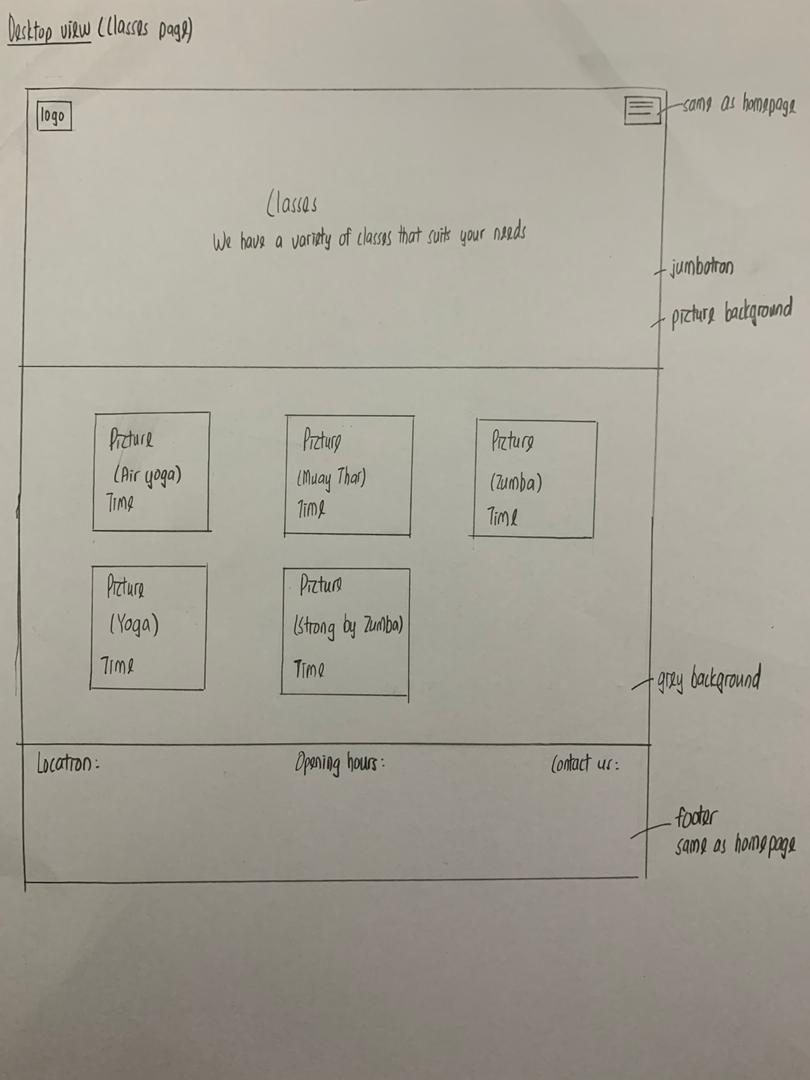 Desktop view (Classes page)
logo
same as homepage
Classes
We have a variety of classes that suits your needs
jumbotron
picture background
Picture
(Air yoga)
Time
Picture
(Muay Thai)
Time
Picture
(Zumba)
Time
Picture
(Yoga)
Time
Picture
(Strong by Zumba)
Time
grey background
Location:
Opening hours:
Contact us:
footer
same as homepage